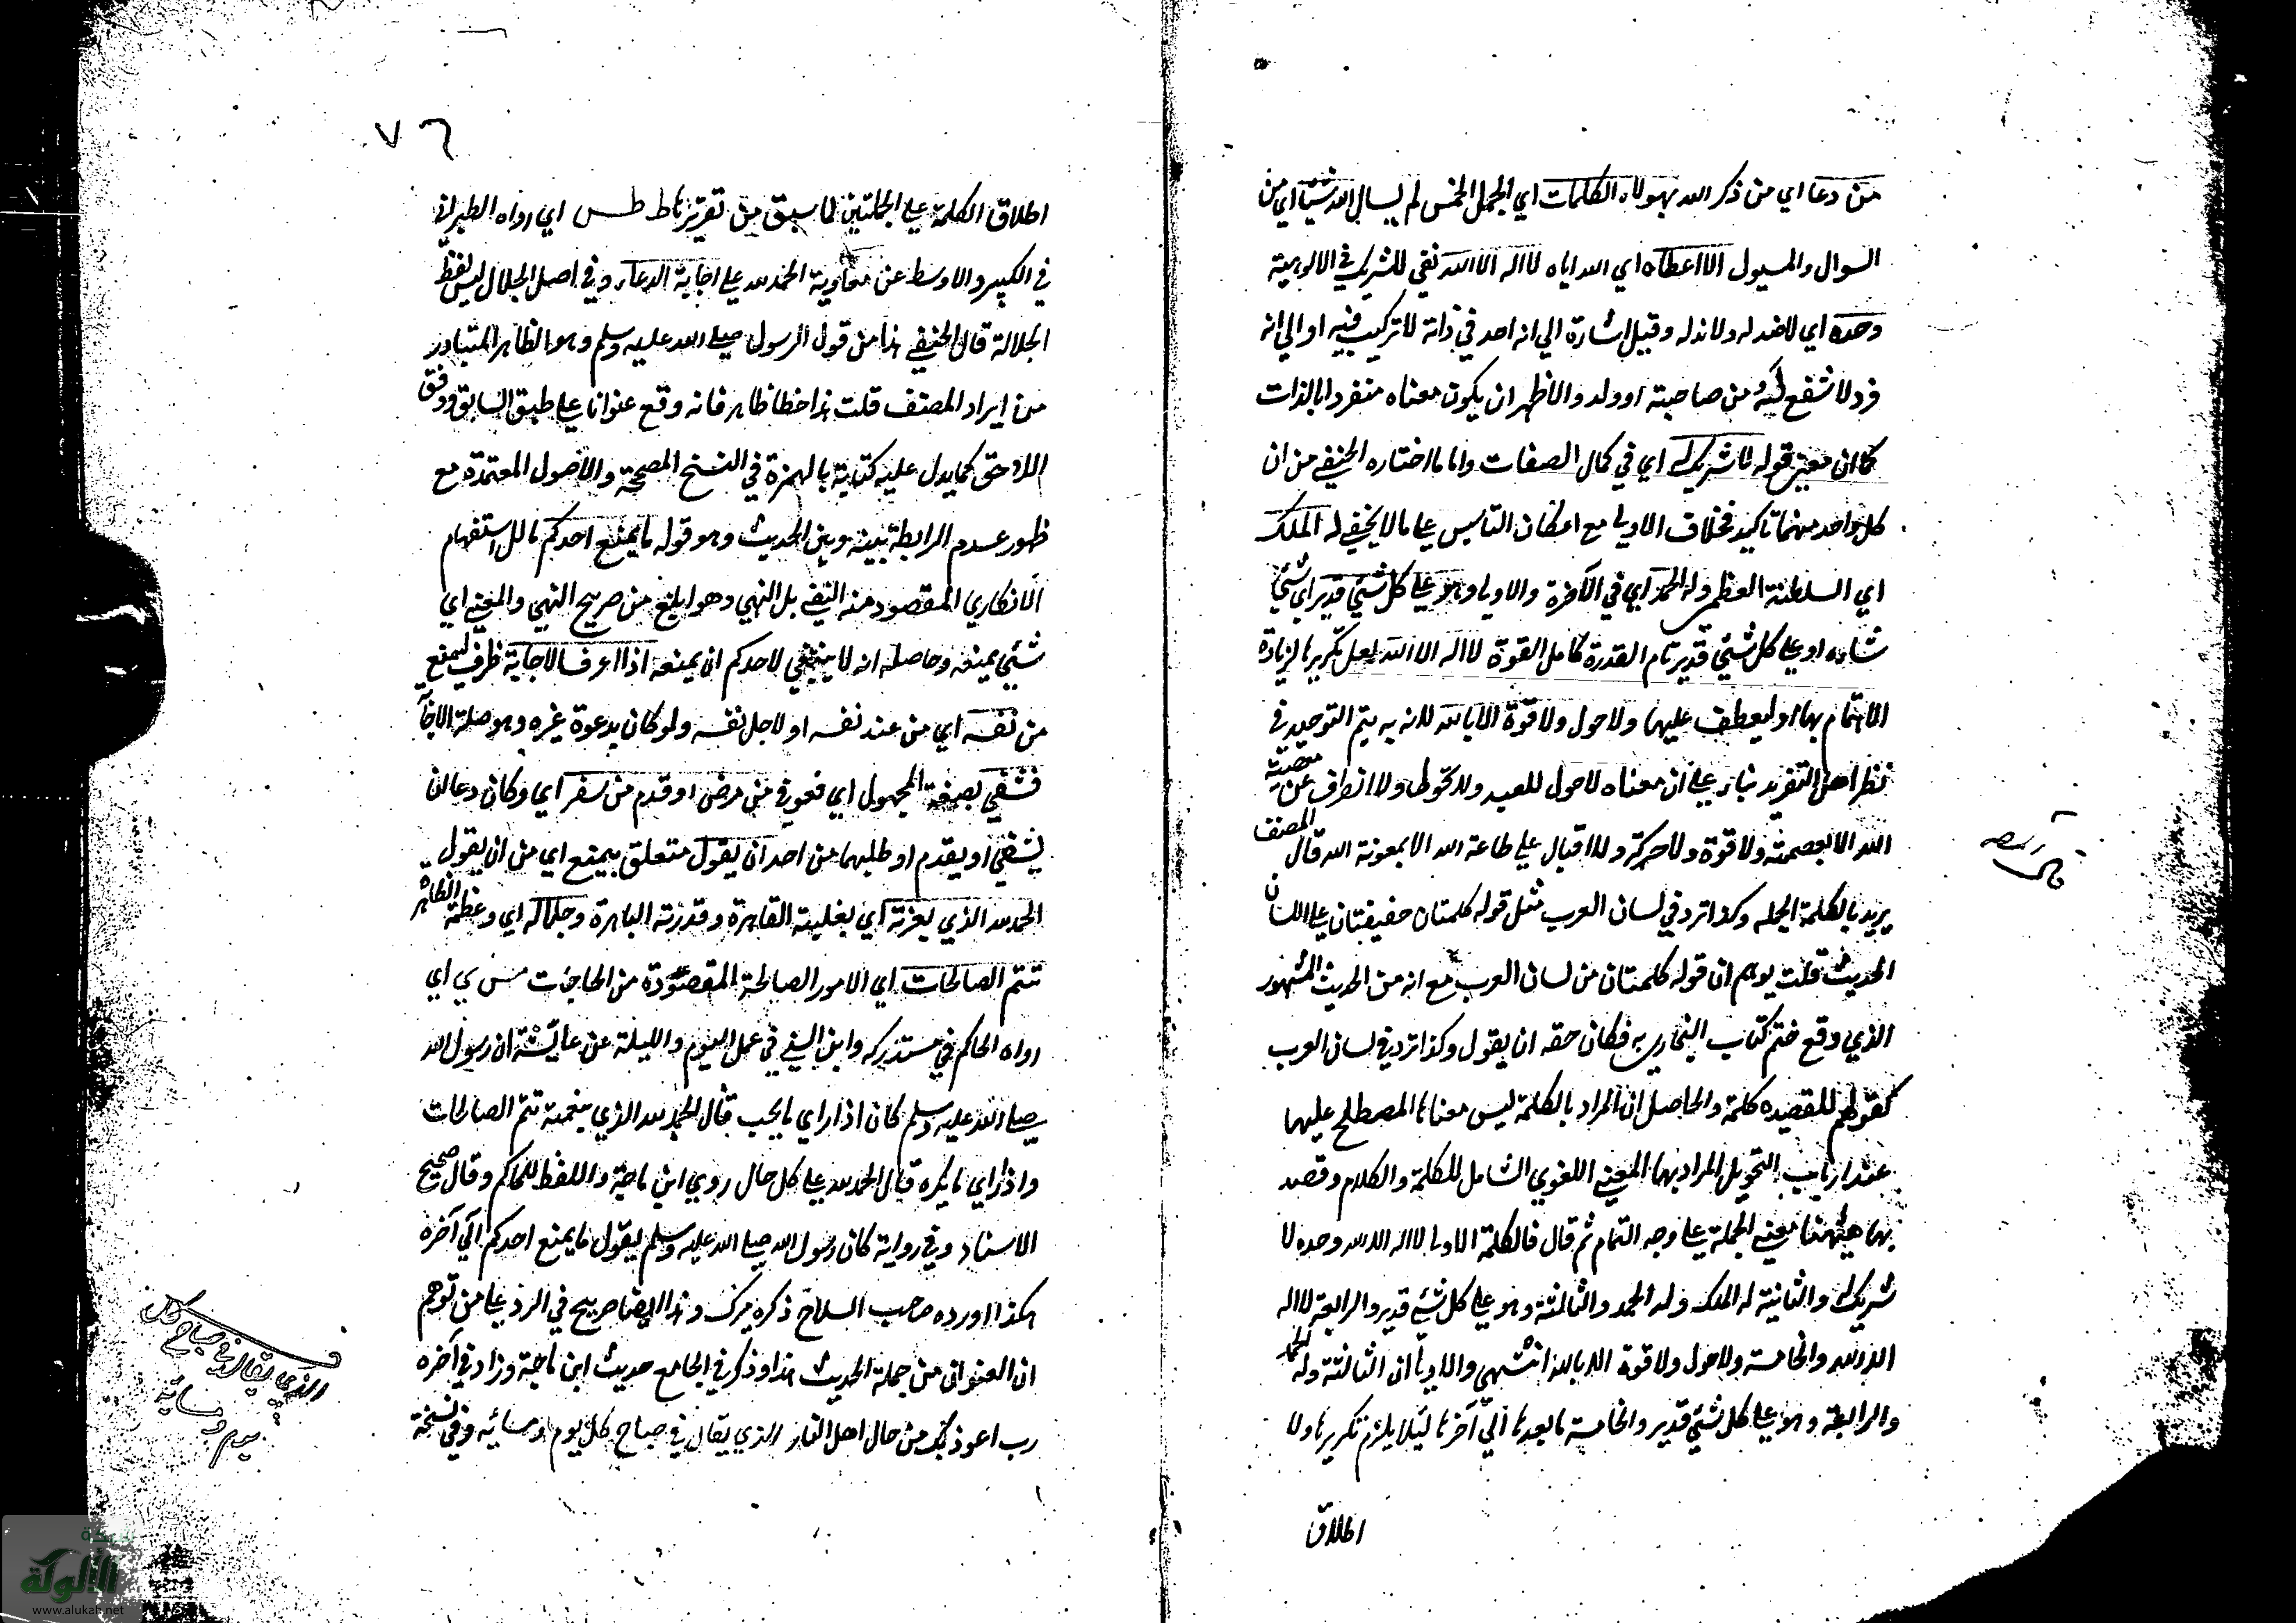 من دعا اي من ذكر الله بهولاء الكلمات اي الجمل الخمس لم يسال الله شيئا اي من
السوال والمسيول الا اعطاه اي الله اياه لا اله الا الله نفي للشريك في الالوهية
وحده اي لا ضد له ولا ند له وقيل اشارة الي انه احد في ذاته لا تركيب فيه او الي انه
فرد لا شفع له من صاحبة او ولد والاظهر ان يكون معناه منفردا بالذات
كما ان معني قوله لا شريك له اي في كمال الصفات واما ما اختاره الحنفي من ان
كل واحد منهما تاكيد فخلاف الاولي مع امكان التاسيس علي ما لا يخفي له الملك
اي السلطنة العظمي وله الحمد اي في الآخرة والاولي وهو علي كل شئي قدير اي شئي
شاءه او علي كل شئي قدير تام القدرة كامل القوة لا اله الا الله لعل تكريرها لزيادة
الاهتمام بها او ليعطف عليها ولا حول ولا قوة الا بالله لانه به يتم التوحيد في
نظر اهل التفريد بناء علي ان معناه لا حول للعبد ولا تحول له ولا انصراف عن معصية
الله الا بعصمته ولا قوة ولا حركة ولا اقبال علي طاعة الله الا بمعونة الله قال المصنف
يريد بالكلمة الجملة وكذا ترد في لسان العرب مثل قوله كلمتان خفيفتان علي اللسان
الحديث قلت يوهم ان قوله كلمتان من لسان العرب مع انه من الحديث المشهور
الذي وقع ختم كتاب البخاري به فكان حقه ان يقول وكذا ترد في لسان العرب
كقولهم للقصيده كلمة والحاصل ان المراد بالكلمة ليس معناها المصطلح عليها
عند ارباب المراد بها المعني اللغوي الشامل للكلمة والكلام وقصد
بها ههنا معني الجملة علي وجه التمام ثم قال فالكلمة الاولي لا اله الا الله وحده لا
شريك له والثانية له الملك وله الحمد والثالثة وهو علي كل شئي قدير والرابعة لا اله
الا الله والخامسة ولا حول ولا قوة الا بالله انتهي والاولي ان الثالثة وله الحمد
والرابعة وهو علي كل شئي قدير والخامسة ما بعدها الي آخرها ليلا يلزم تكريرها ولا
اطلاق
٧٦
اطلاق الكلمة علي الجملتين لما سبق من تقرير ط طس اي رواه الطبراني
في الكبير والاوسط عن معاوية الحمد لله علي اجابة الدعاء وفي اصل الجلال ليس لفظ
الجلالة قال الحنفي هذا من قول الرسول صلي الله عليه وسلم وهو الظاهر المتبادر
من ايراد المصنف قلت هذا خطا ظاهر فانه وقع عنوانا علي طبق السابق ووفق
اللاحق كما يدل عليه كتابته بالهمزة في النسخ المصححة والاصول المعتمدة مع
ظهور عدم الرابطة بينه وبين الحديث وهو قوله ما يمنع احدكم ما للاستفهام
الانكاري المقصود منه النفي بل النهي وهو ابلغ من صريح النهي والمعني اي
شئي يمنعه وحاصله انه لا ينبغي لاحدكم ان يمنعه اذا عرف الاجابة ظرف ليمنع
من نفسه اي من عند نفسه او لاجل نفسه ولو كان بدعوة غيره وهو صلة الاجابة
فشفي بصيغة المجهول اي فعوفي من مرض او قدم من سفر اي وكان دعا ان
يشفي او يقدم او طلبهما من احد ان يقول متعلق بيمنع اي من ان يقول
الحمد لله الذي بعزته اي بغلبته القاهرة وقدرته الباهرة وجلاله اي وعظمته الظاهرة
تتم الصالحات اي الامور الصالحة المقصودة من الحاجات مس ي اي
رواه الحاكم في مستدركه وابن السني في عمل اليوم والليلة عن عائشة ان رسول الله
صلي الله عليه وسلم كان اذا راي ما يحب قال الحمد لله الذي بنعمته تتم الصالحات
واذا راي ما يكره قال الحمد لله علي كل حال روي ابن ماجة واللفظ للحاكم وقال صحيح
الاسناد وفي رواية كان رسول الله صلي الله عليه وسلم يقول ما يمنع احدكم الي آخره
هكذا اورده صاحب السلاح ذكره ميرك وهذا ايضا صريح في الرد علي من توهم
ان العنوان من جملة الحديث هذا وذكر في الجامع حديث ابن ماجة وزاد في آخره
رب اعوذ بك من حال اهل النار الذي يقال في صباح كل يوم ومسائه وفي نسخة
الذي يقال في صباح كل
يوم ومسائه
الألوكة
www.alukah.net